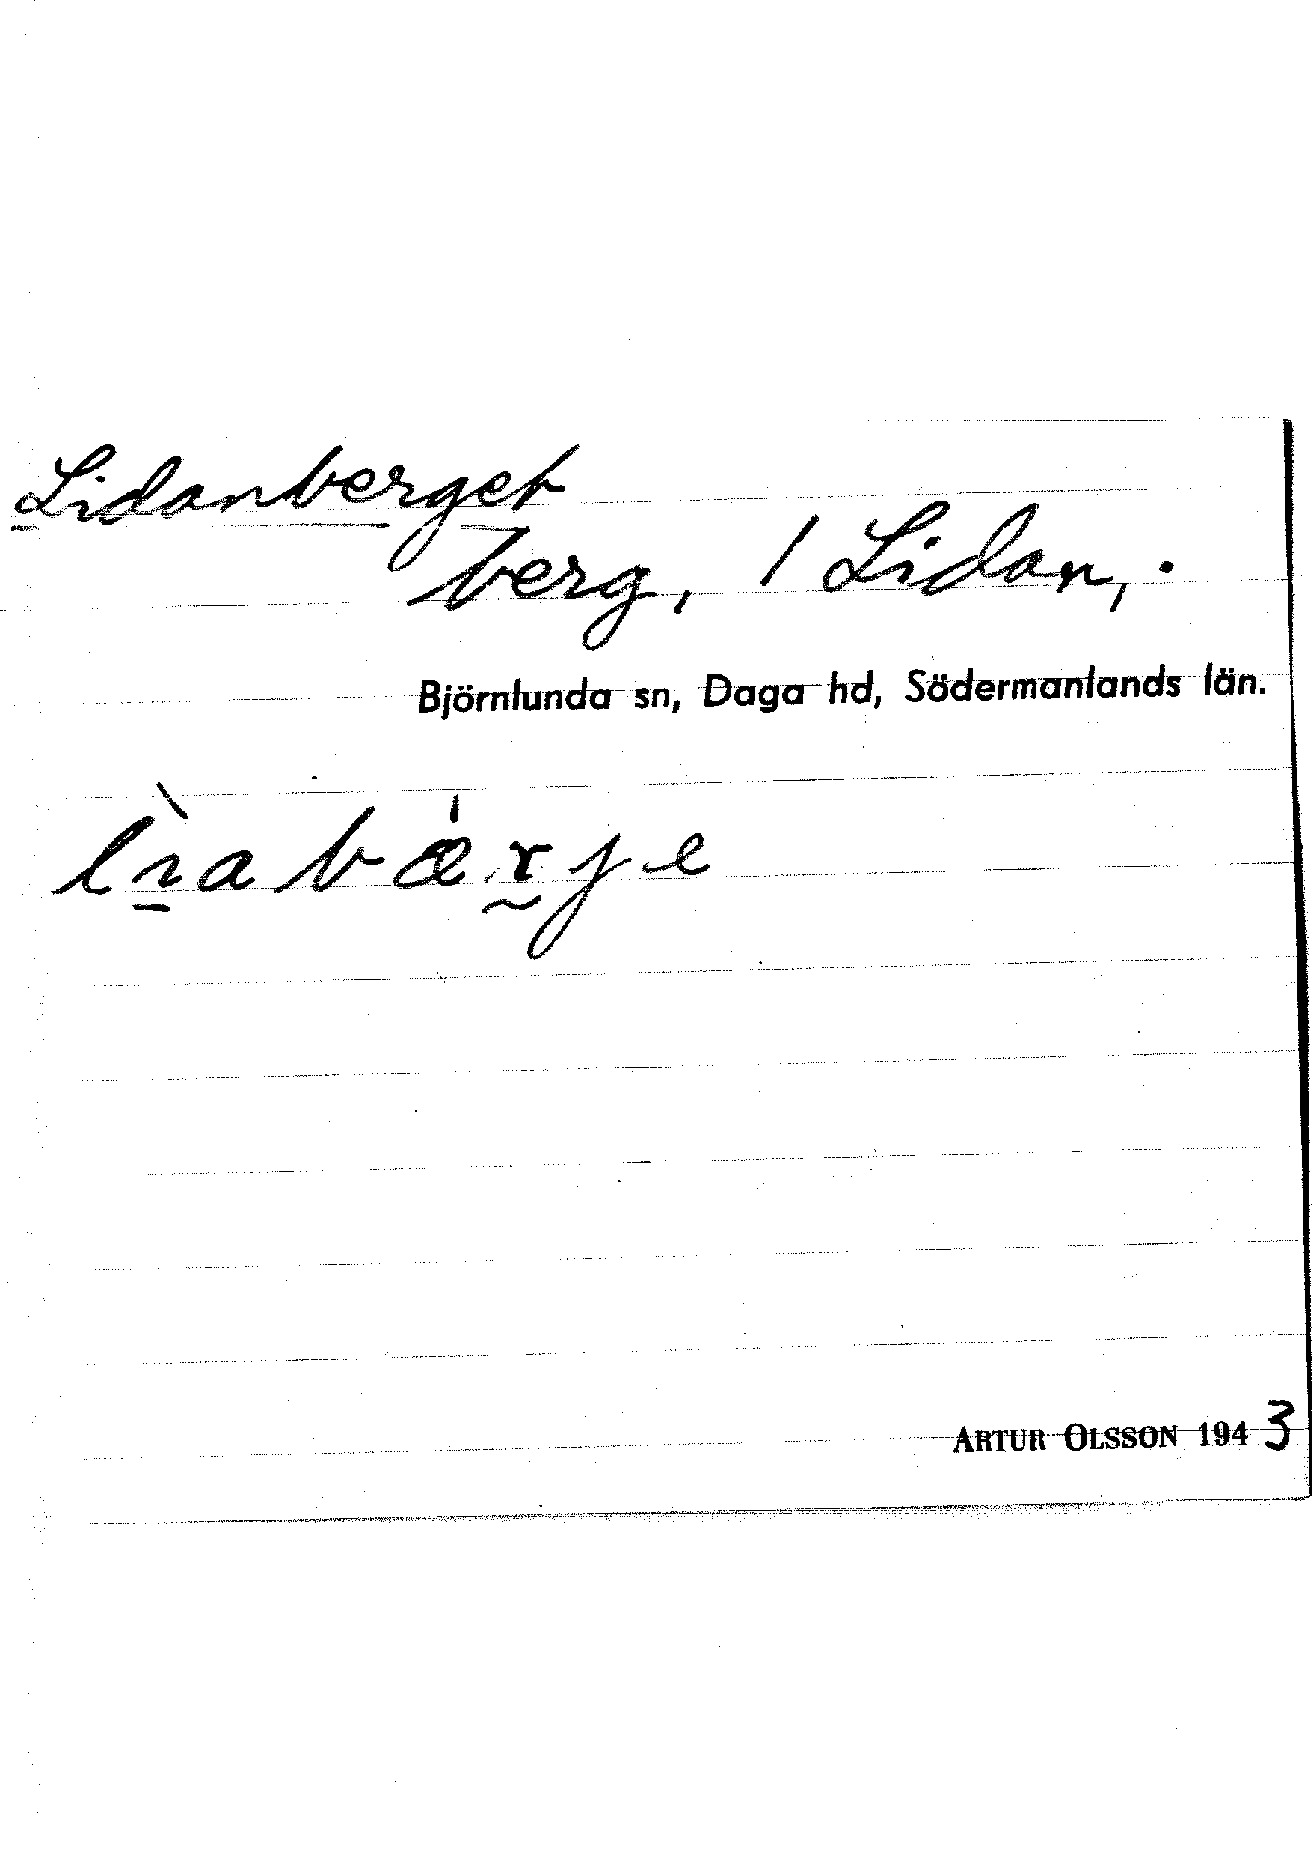 Lidanberget
berg, 1 Lidan,.
Björnlunda sn, Daga hd, Södermanlands län.
ARTUR OLSSON 1943